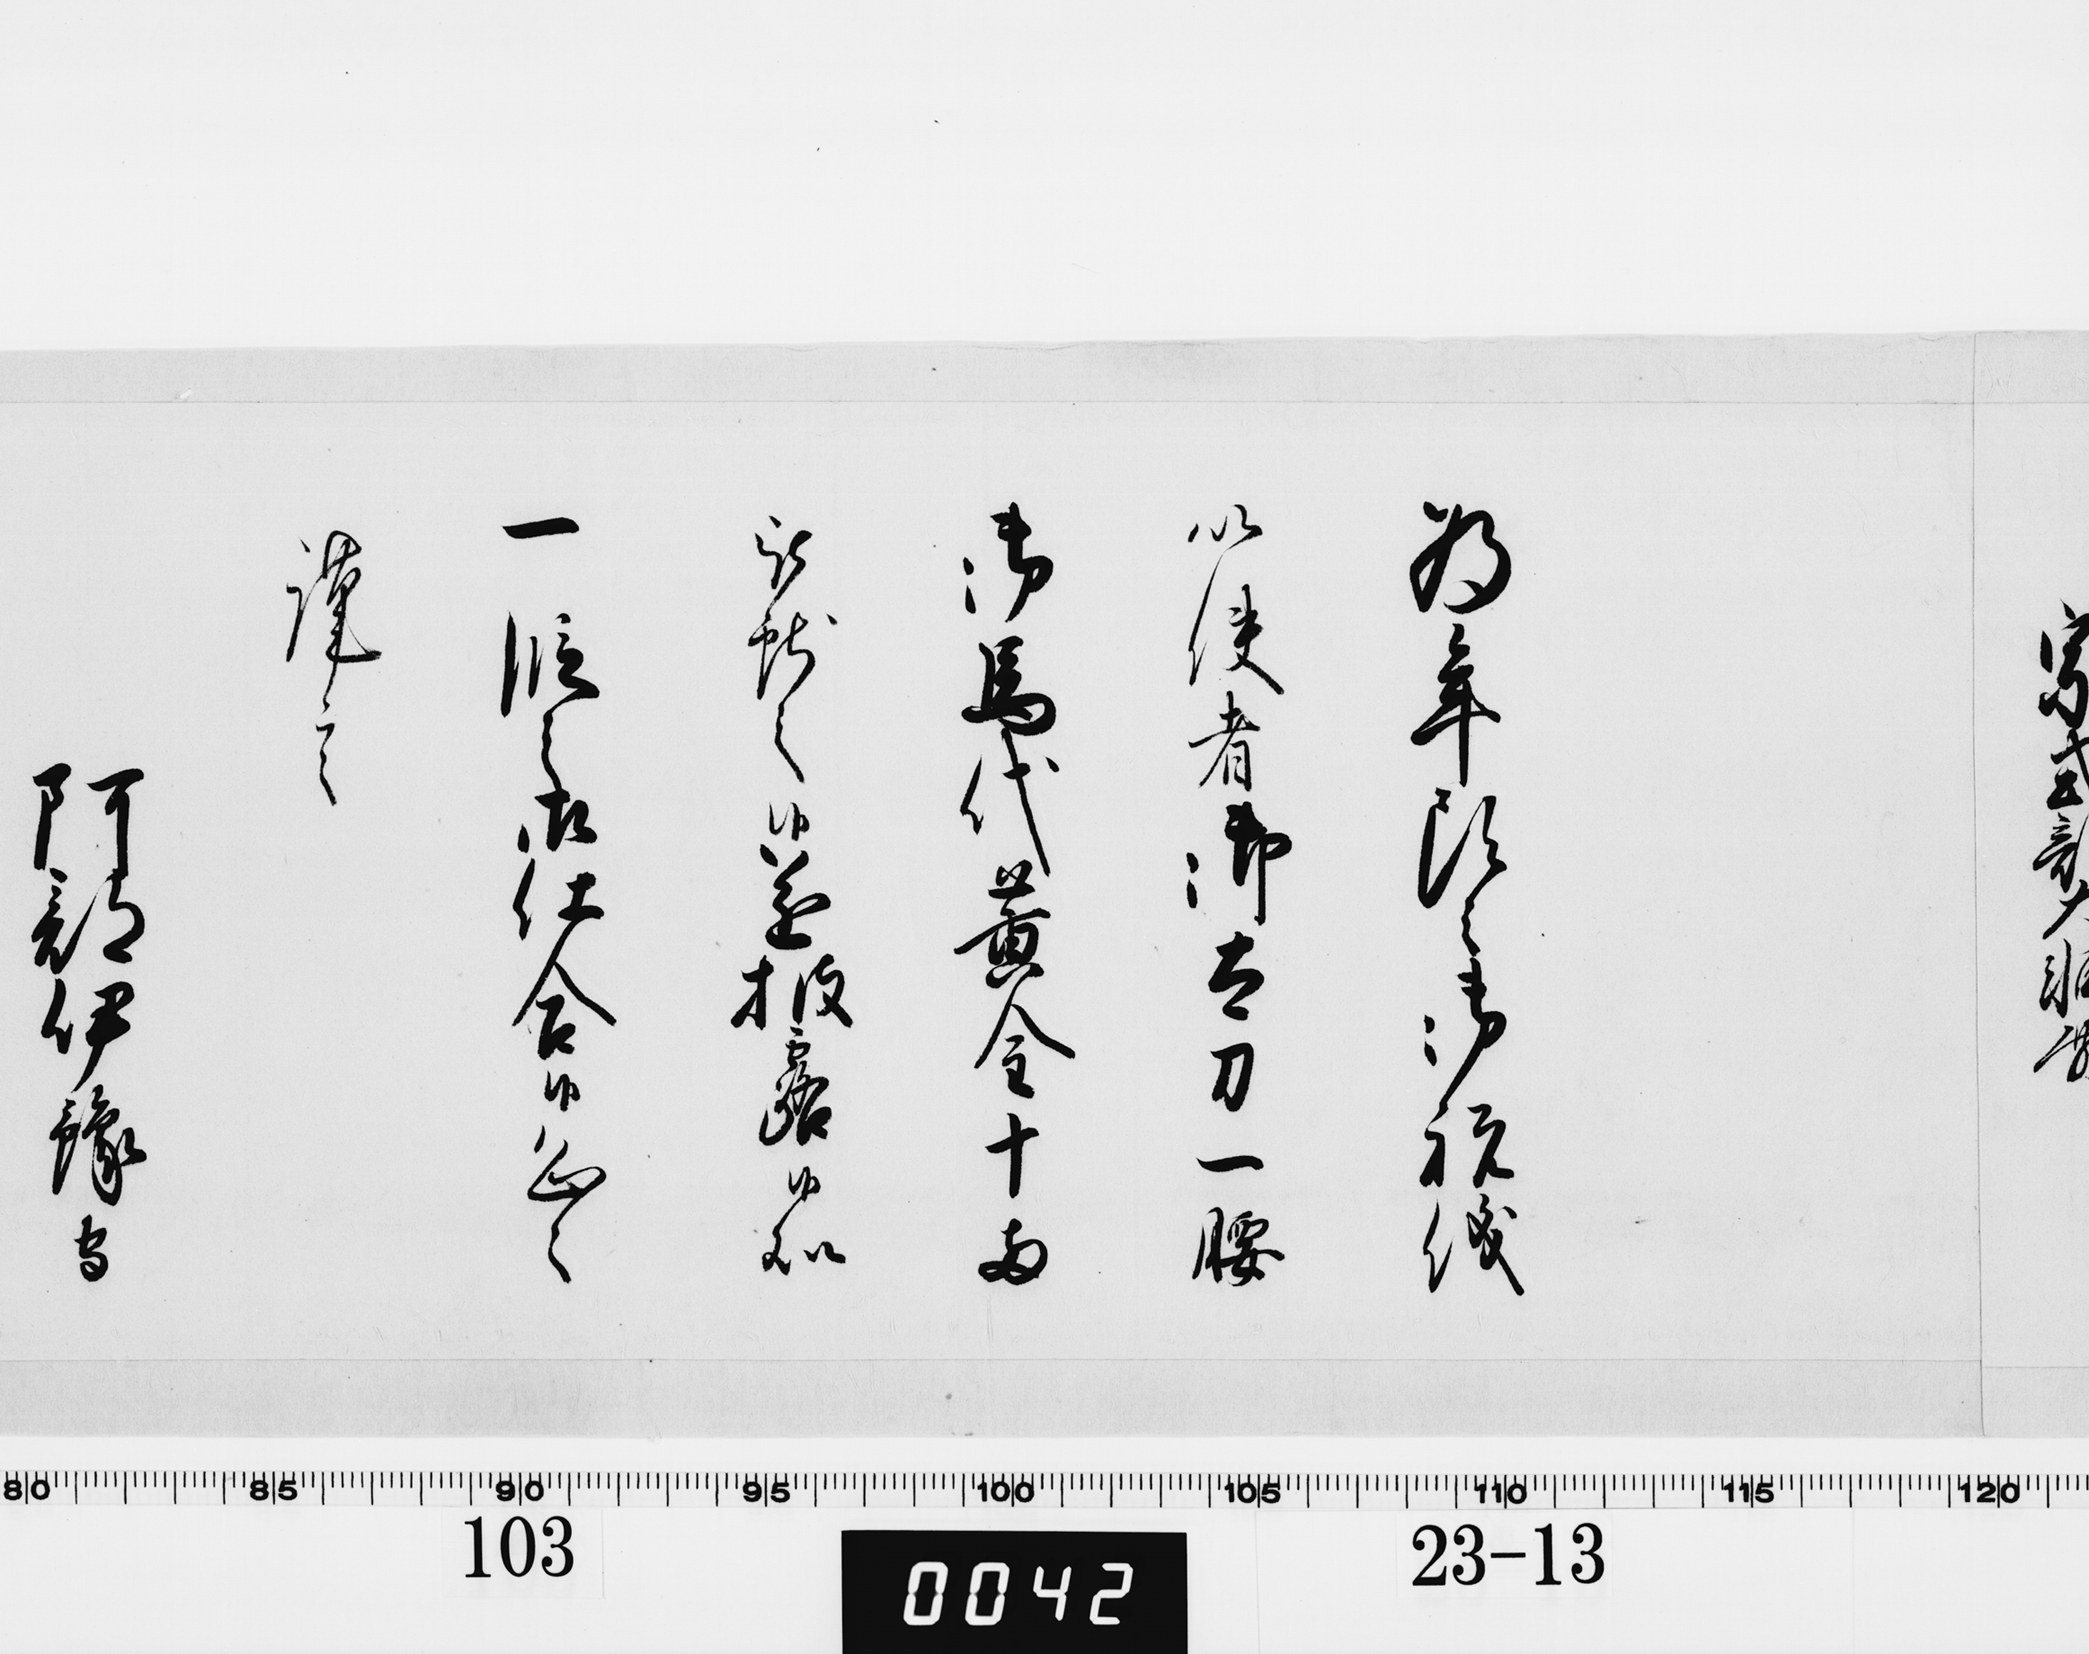 宗式部大輔殿
為年頭之御祝儀
以使者御太刀一腰
御馬代黄金十両
被献之候遂披露候処
一段之御仕合候恐々
謹言
阿部伊豫守
80 85 90 95 100 105 110 115 120
103
0042
23-13